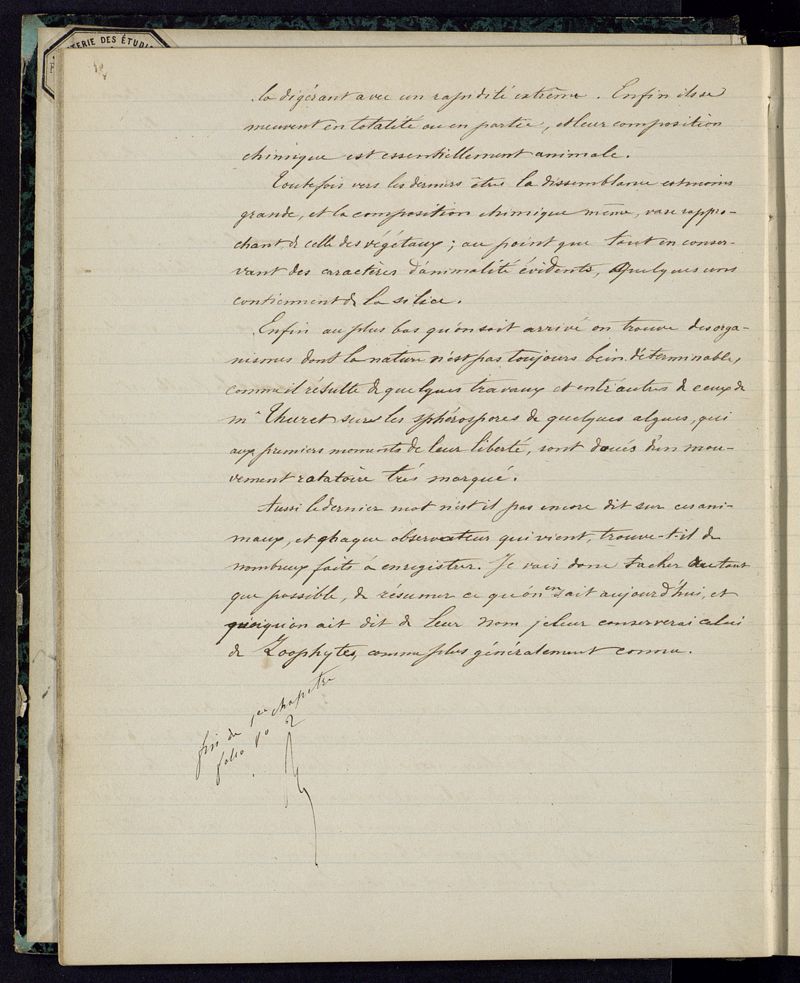 TERIE DES ÉTUDI
la digérant avec un rapidité extrême. Enfin ils se
meuvent en totalité ou en partie, et leur composition
chimique est essentiellement animale.
Toutefois vers les derniers êtres la dissemblance est moins
grande, et la composition chimique même, va se rappro-
chant de celle des végétaux ; au point que tout en conser-
vant des caractères d'animalité évidents, Quelques uns
contiennent de la silice.
Enfin au plus bas qu'on soit arrivé on trouve des orga-
nismes dont la nature n'est pas toujours bein déterminable,
comme il résulte de quelques travaux et entr'autres de ceux de
mr Thuret sur les sphérospores de quelques algues, qui
aux premiers moments de leur liberté, sont doués d'un mou-
vement rotatoire très marqué.
Aussi le dernier mot n'est il pas encore dit sur ces ani-
maux, et chaque observateur qui vient, trouve-t-il de
nombreux faits à enregistrer. Je vais donc tacher autant
que possible, de résumer ce qu'on en sait aujourd'hui, et
quoiqu'on ait dit de leur nom je leur conserverai celui
de Zoophytes, comme plus généralement connu.
fin du 1er chapitre
folio 1o 2